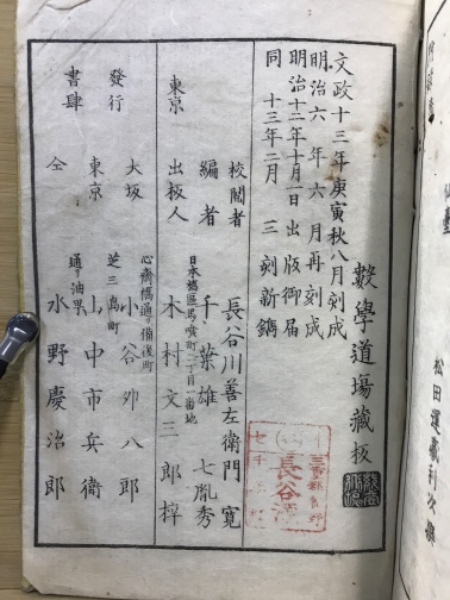 文政十三年庚寅秋八月刻成
明治六年六月再刻成
明治十二年十月一日出版御届
同十三年二月三刻新鐫
數學道場藏板
校閲者 長谷川善左衛門 寛
編者 千葉雄七胤秀
日本橋區馬喰町二丁目一番地
東京 出板人 木村文三郎梓
長谷
發行
書肆
心斎橋通リ備後町
大坂 小谷卯八郎
芝三島町
東京 山中市兵衛
通リ油町
仝 水野慶治郎
松田運義利次撰